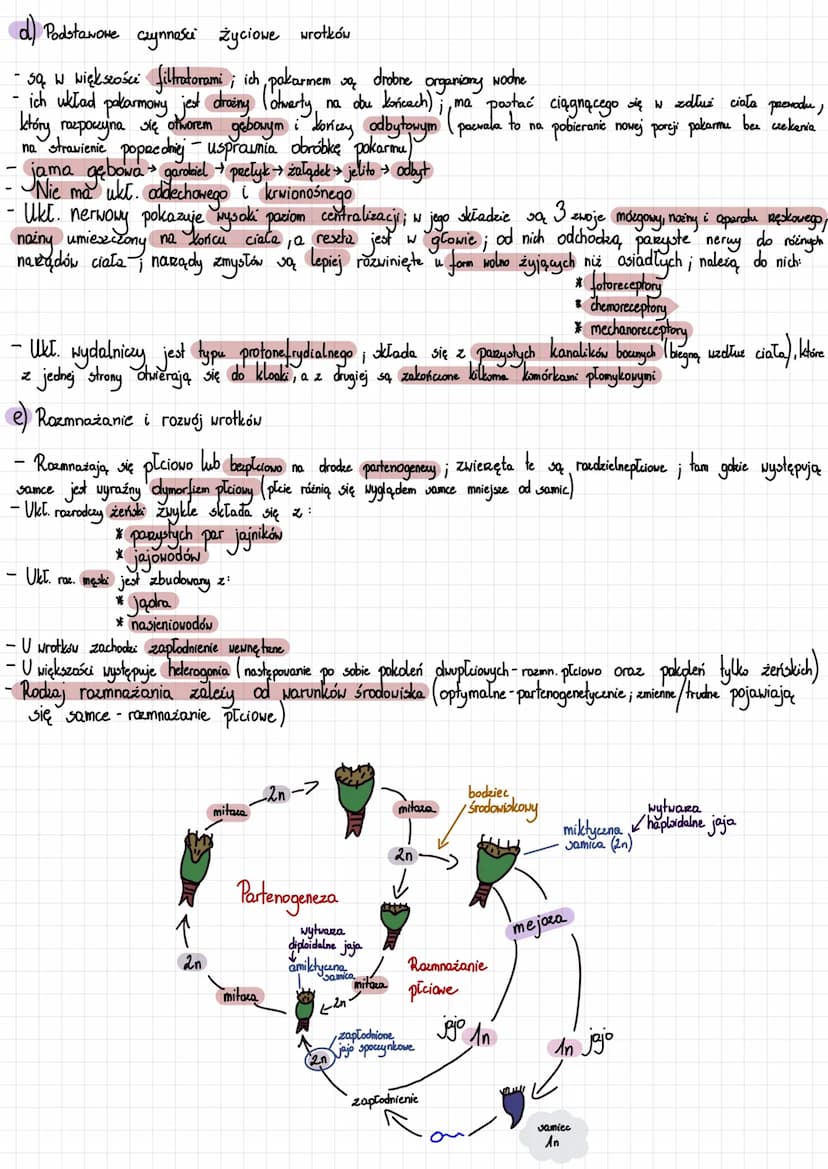 d) Podstawowe czynności życiowe wrotków
- są w większości filtratorami ; ich pokarmem są drobne organizmy wodne
- ich układ pokarmowy jest drożny (otwarty na obu końcach) ; ma postać ciągnącego się w zdłuż ciała przewodu,
który rozpoczyna się otworem gębowym i kończy odbytowym (pozwala to na pobieranie nowej porcji pokarmu bez czekania
na strawienie poprzedniej - usprawnia obróbkę pokarmu)
- jama gębowa → gardziel → przełyk → żołądek → jelito → odbyt
- Nie ma ukł. oddechowego i krwionośnego
- Ukł. nerwowy pokazuje wysoki poziom centralizacji ; w jego składzie są 3 zwoje mózgowy, nożny i aparatu rzęskowego,
nożny umieszczony na końcu ciała , a reszta jest w głowie ; od nich odchodzą parzyste nerwy do różnych
narządów ciała ; narządy zmysłów są lepiej rozwinięte u form wolno żyjących niż osiadłych ; należą do nich:
* fotoreceptory
* chemoreceptory
* mechanoreceptory
- Ukł. wydalniczy jest typu protonefrydialnego ; składa się z parzystych kanalików bocznych (biegną wzdłuż ciała), które
z jednej strony otwierają się do kloaki, a z drugiej są zakończone kilkoma komórkami płomykowymi
e) Rozmnażanie i rozwój wrotków
- Rozmnażają się płciowo lub bezpłciowo na drodze partenogenezy ; zwierzęta te są rozdzielnopłciowe ; tam gdzie występują
samce jest wyraźny dymorfizm płciowy (płcie różnią się wyglądem samce mniejsze od samic)
- Ukł. rozrodczy żeński zwykle składa się z :
* parzystych par jajników
* jajowodów
- Ukł. roz. męski jest zbudowany z:
* jądra
* nasieniowodów
- U wrotków zachodzi zapłodnienie wewnętrzne
- U większości występuje heterogonia (następowanie po sobie pokoleń dwupłciowych - rozmn. płciowo oraz pokoleń tylko żeńskich)
- Rodzaj rozmnażania zależy od warunków środowiska (optymalne - partenogenetycznie ; zmienne/trudne pojawiają
się samce - rozmnażanie płciowe)
mitoza
2n
mitoza
2n
bodziec
środowiskowy
miktyczna
samica (2n)
wytwarza
haploidalne jaja
Partenogeneza
mejoza
wytwarza
diploidalne jaja
amiktyczna
samica
mitoza
2n
2n
mitoza
Rozmnażanie
płciowe
jajo 1n
1n jajo
zapłodnione
jajo spoczynkowe
2n
zapłodnienie
samiec
1n